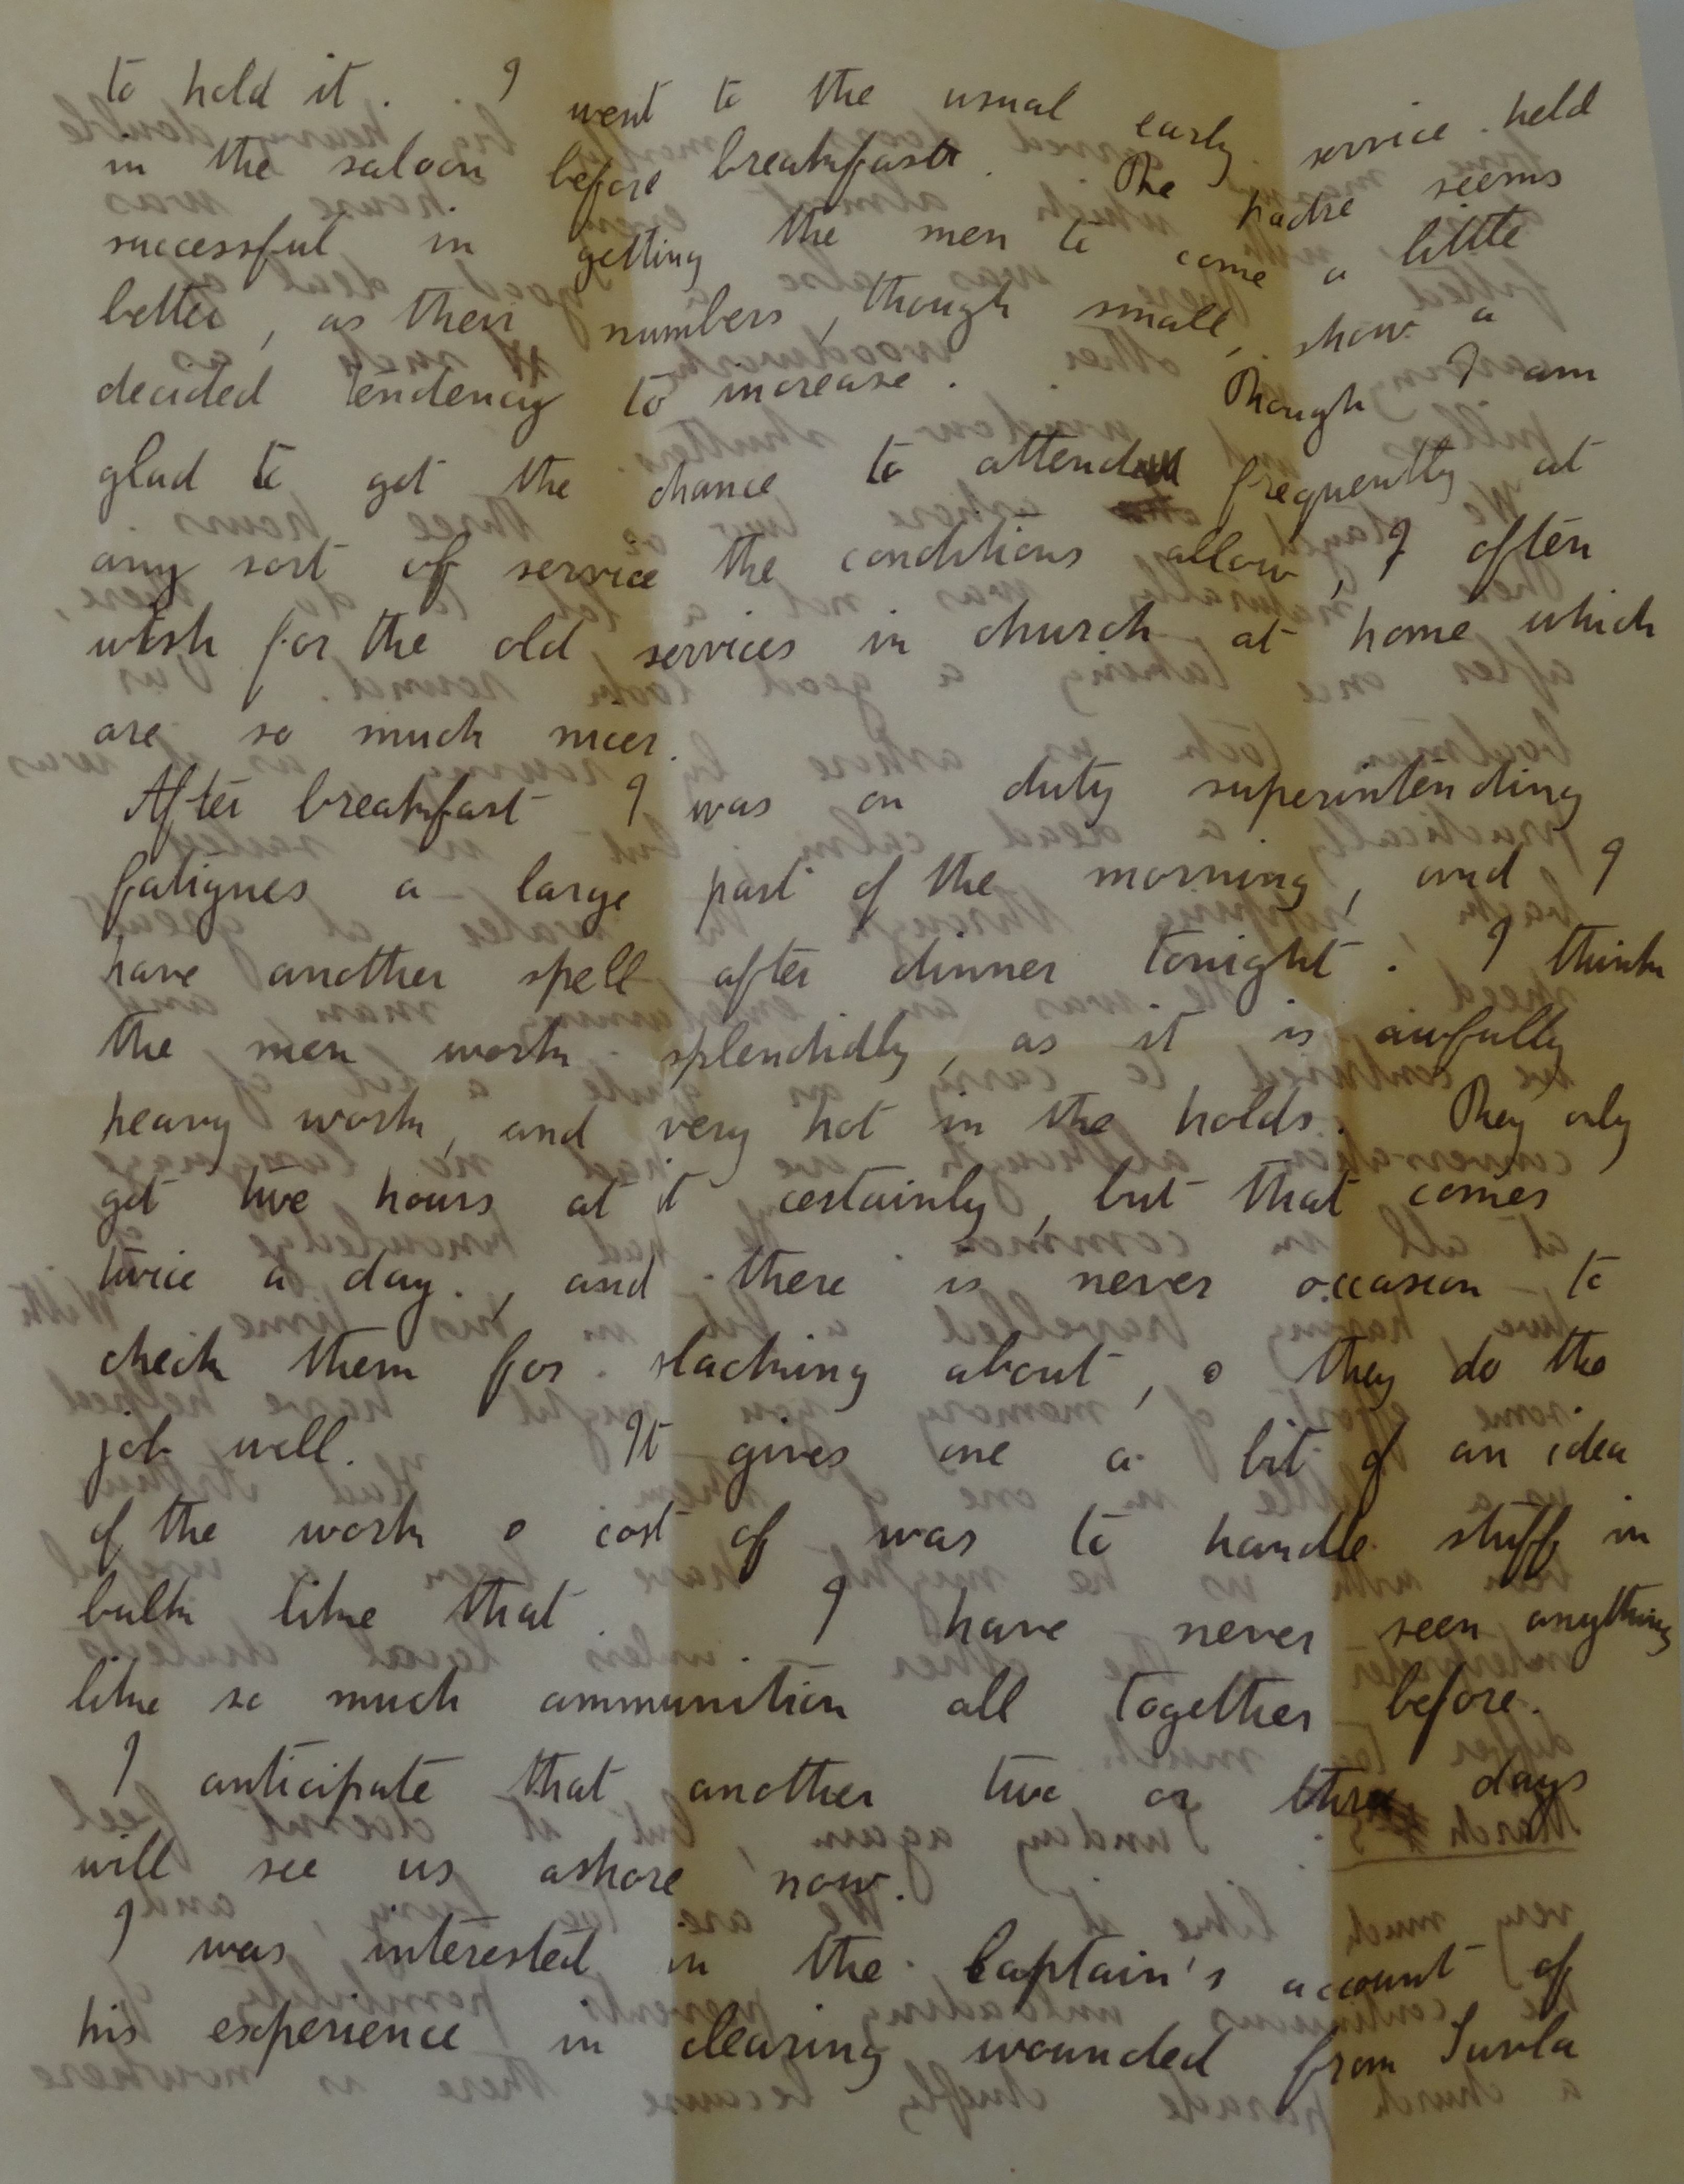 to hold it. I went to the usual early service held
in the saloon before breakfast. The padre seems
successful in getting the men to come a little
better, as their numbers, though small, show a
decided tendency to increase. Though I am
glad to get the chance to attend frequently at
any sort of service the conditions allow, I often
wish for the old services in church at home which
are so much nicer.
After breakfast I was on duty superintending
fatigues a large part of the morning, and I
have another spell after dinner tonight. I think
the men work splendidly, as it is awfully
heavy work, and very hot in the holds. They only
get two hours at it certainly, but that comes
twice a day, and there is never occasion to
check them for slacking about, & they do the
job well. It gives one a bit of an idea
of the work & cost of was to handle stuff in
bulk like that. I have never seen anything
like so much ammunition all together before.
I anticipate that another two or three days
will see us ashore now.
I was interested in the Captain's account of
his experience in clearing wounded from Suvla